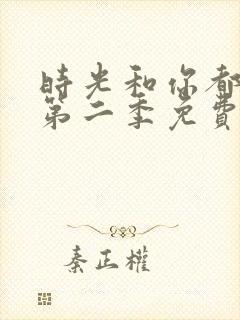 時光和你都
第二季免費
秦正權